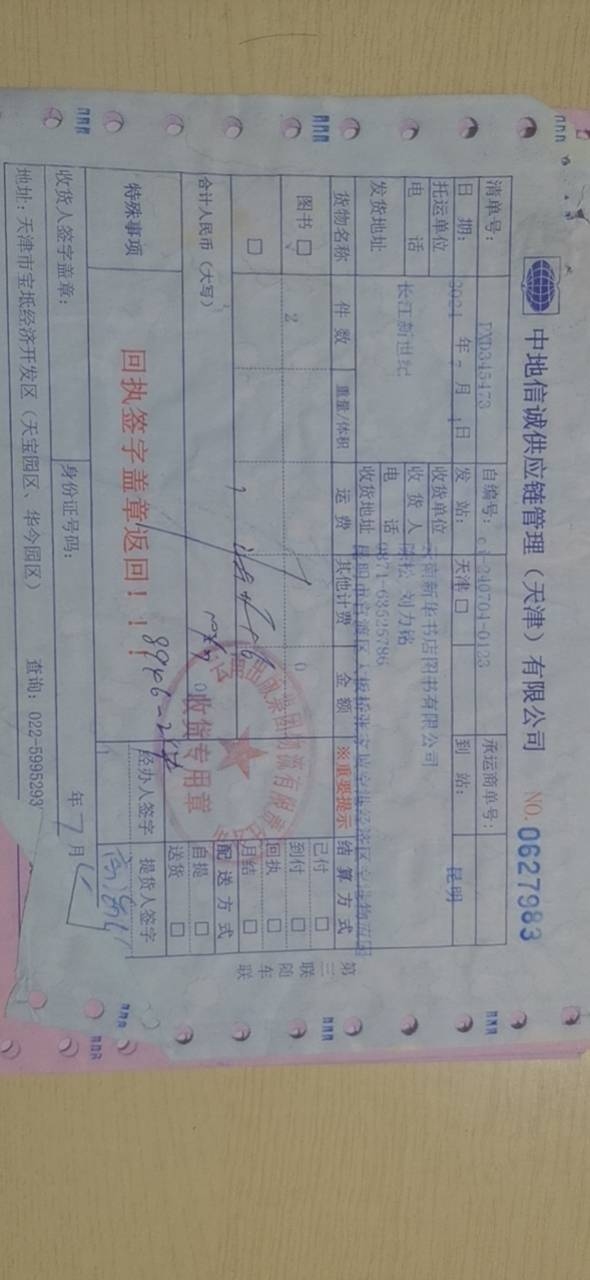 中地信诚供应链管理（天津）有限公司 NO.0627983
清单号： TXD345473 自编号： 240704-0123 承运商单号：
日 期： 2024 年 月 日 发 站： 天津 □ 到 站： 昆明
托运单位 长江新世纪 收货单位 云南新华书店图书有限公司
电 话 收 货 人 松 刘力铭
发货地址 电 话 0871-63525786
收货地址 昆明市官渡区大板桥
货物名称 件 数 重量/体积 运 费 其他计费 金 额 ※重要提示 结 算 方 式
图书 □ 2 0 已付 □
到付 □
□ 回执 □
月结 □
合计人民币（大写） 0 配 送 方 式
自提 □
送货 □
收货专用章
特殊事项 回执签字盖章返回！！！ 经办人签字 提货人签字
收货人签字盖章： 身份证号码： 年 7 月
地址：天津市宝坻经济开发区（天宝园区、华今园区） 查询：022-5995293
第三联 随车联